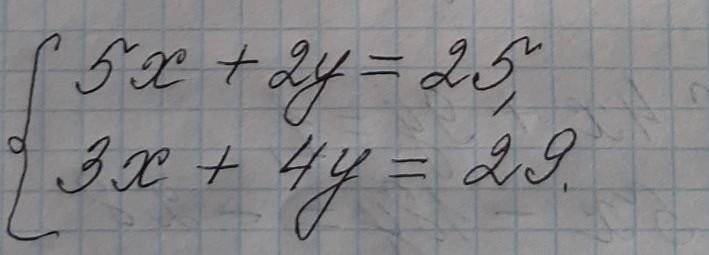 5x + 2y = 25,
3x + 4y = 29.